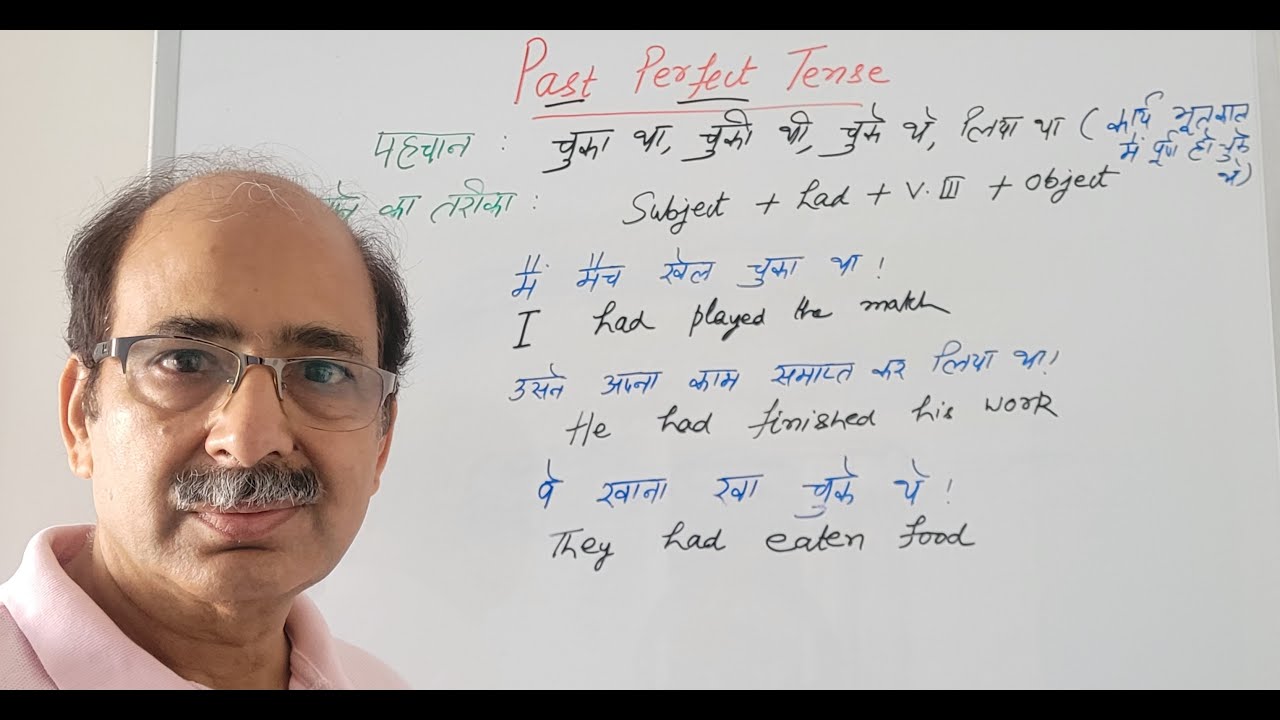 Past Perfect Tense
पहचान : चुका था, चुकी थी, चुके थे, लिया था ( कार्य भूतकाल
में पूर्ण हो चुके
थे)
का तरीका : Subject + had + V.III + Object
मैं मैच खेल चुका था !
I had played the match
उसने अपना काम समाप्त कर लिया था!
He had finished his work
वे खाना खा चुके थे !
They had eaten food